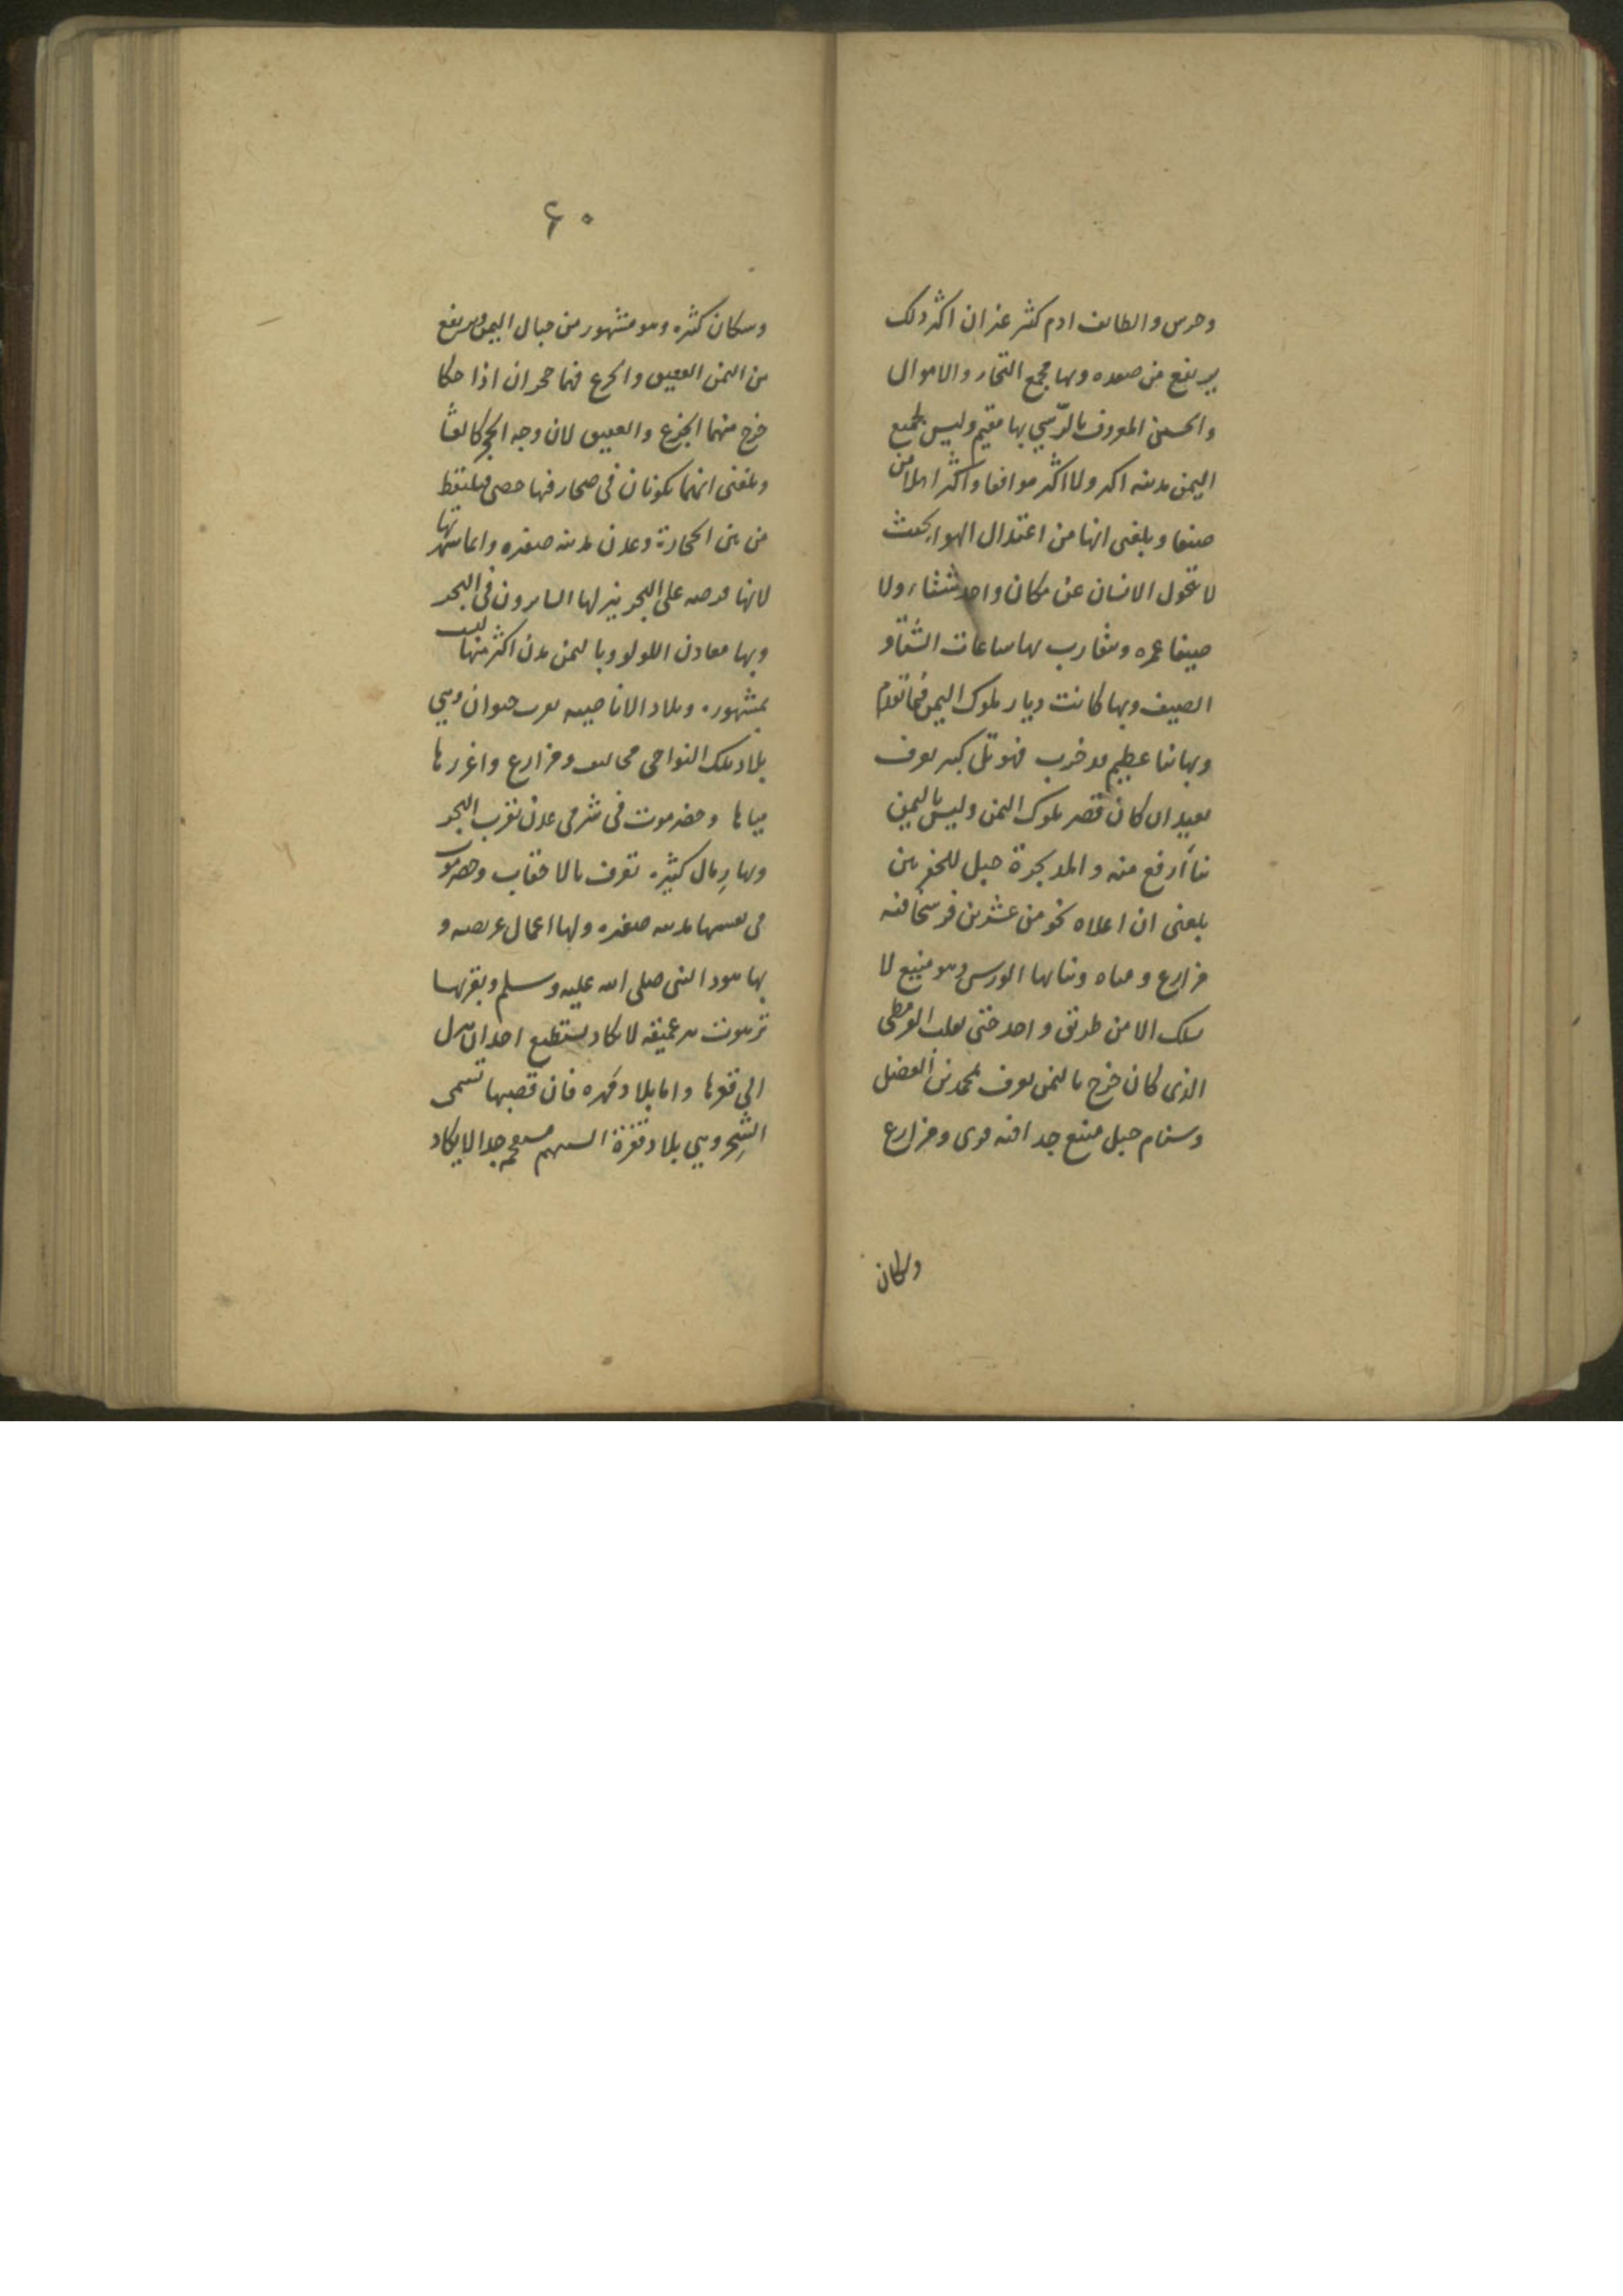 وحرس والطائف ادم كثير غير ان اكثر ذلك
يرتفع من صعده وبها مجمع التجار والاموال
والحسنى المعروف بالرّسي بها مقيم وليس بجميع
اليمن مدينه اكبر ولا اكثر مرافقا واكثر اهلا من
صنعا وبلغنى انها من اعتدال الهوا بحيث
لا يتحول الانسان عن مكان واحد شتاء ولا
صيفا عمره وتتقارب بها ساعات الشتا و
الصيف وبها كانت ديار ملوك اليمن فيما تقدم
وبها بنا عظيم قد خرب فهو تل كبير يعرف
بغمدان كان قصر ملوك اليمن وليس باليمن
بنا أرفع منه والمديخرة جبل للجعفريين
بلغنى ان اعلاه نحو من عشرين فرسخا فيه
مزارع ومياه ونباتها الورس وهو منيع لا
يسلك الا من طريق واحد حتى تغلب القرمطى
الذى كان خرج باليمن يعرف بمحمد بن الفضل
وسنام جبل منيع جدا فيه قرى ومزارع
وسكان
٦٠
وسكان كثيره وهو مشهور من جبال اليمن ويرتفع
من اليمن العقيق والجزع فهما حجران اذا حكا
خرج منهما الجزع والعقيق لان وجه الحجر كالغشا
وبلغنى انهما يكونان فى صحار فيها حصى فيلتقط
من بين الحجارة وعدن مدينه صغيره وانما شهرتها
لانها فرضه على البحر ينزلها السايرون فى البحر
وبها معادن اللولو وباليمن مدن اكثر منها ليست
بمشهوره وبلاد الاباضيه قرب خيوان وهي
بلاد تلك النواحى مخاليف ومزارع واغزرها
مياها وحضرموت فى شرقى عدن بقرب البحر
وبها رمال كثيره تعرف بالاحقاف وحضرموت
فى نفسها مدينه صغيره ولها اعمال عريضه و
بها هود النبى صلى الله عليه وسلم وبقربها
برهوت بير عميقه لا يكاد يستطيع احد ان ينزل
الى قعرها واما بلاد مَهره فان قصبها تسمى
الشِحر وهي بلاد قفرة السنهم مستعجمه جدا لا يكاد